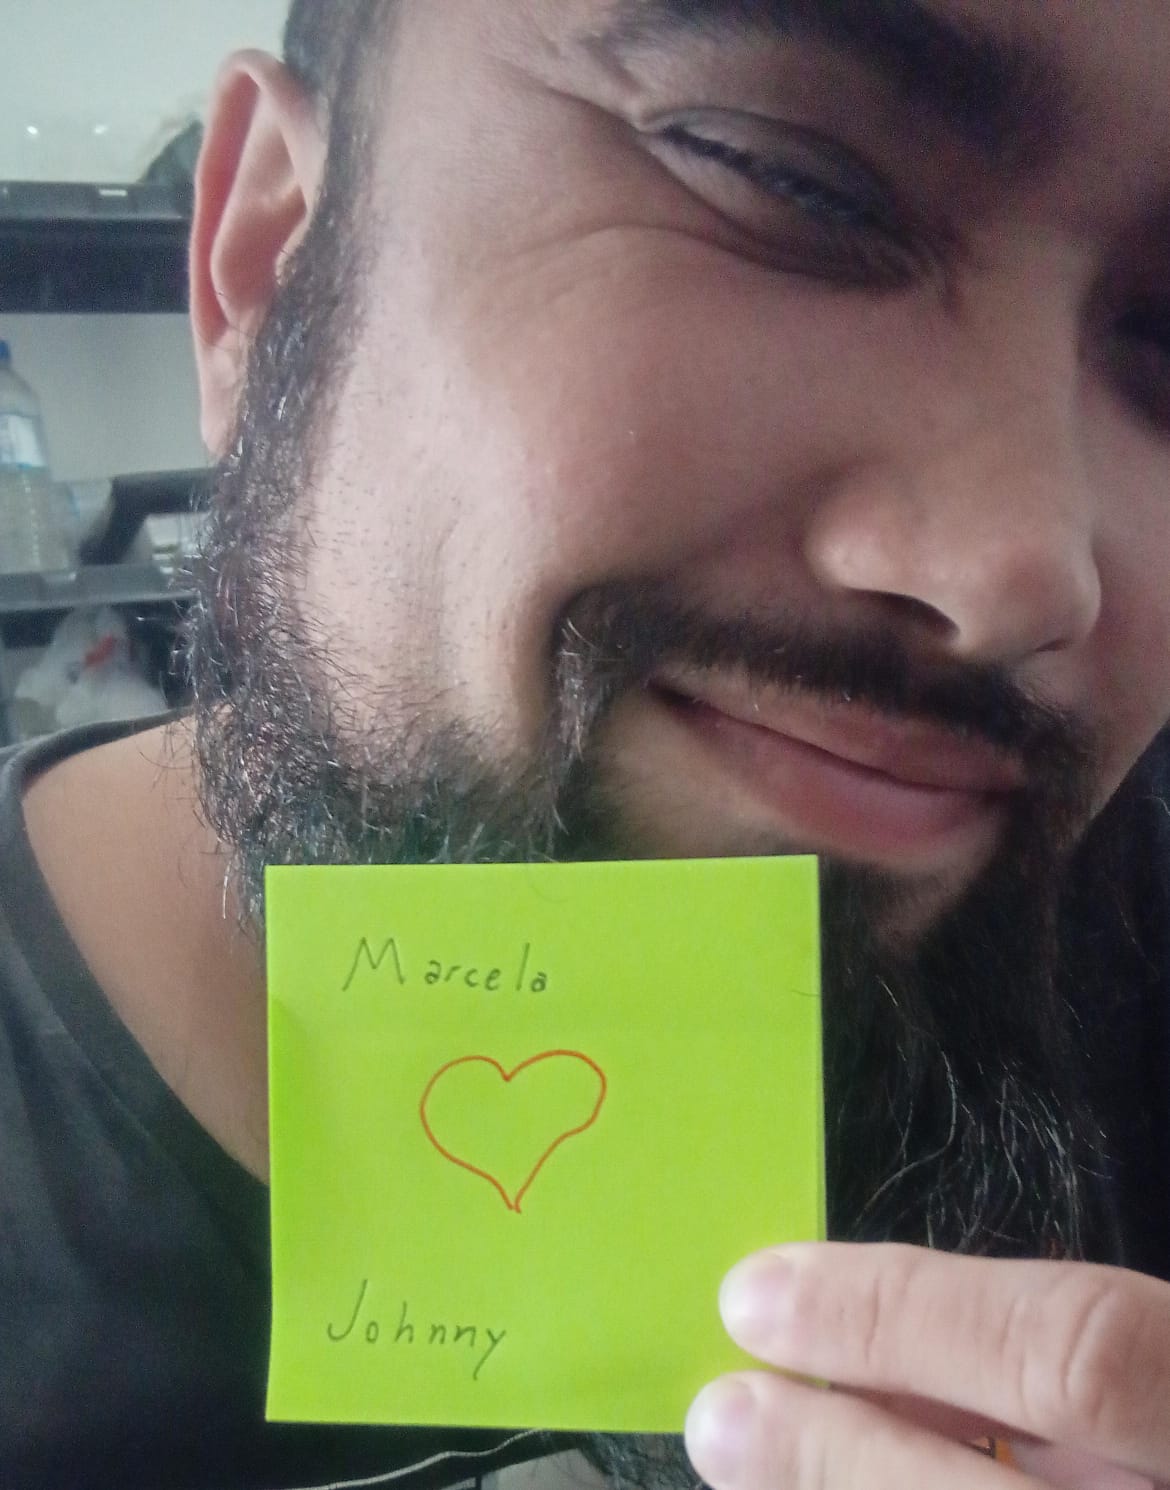 Marcela
Johnny